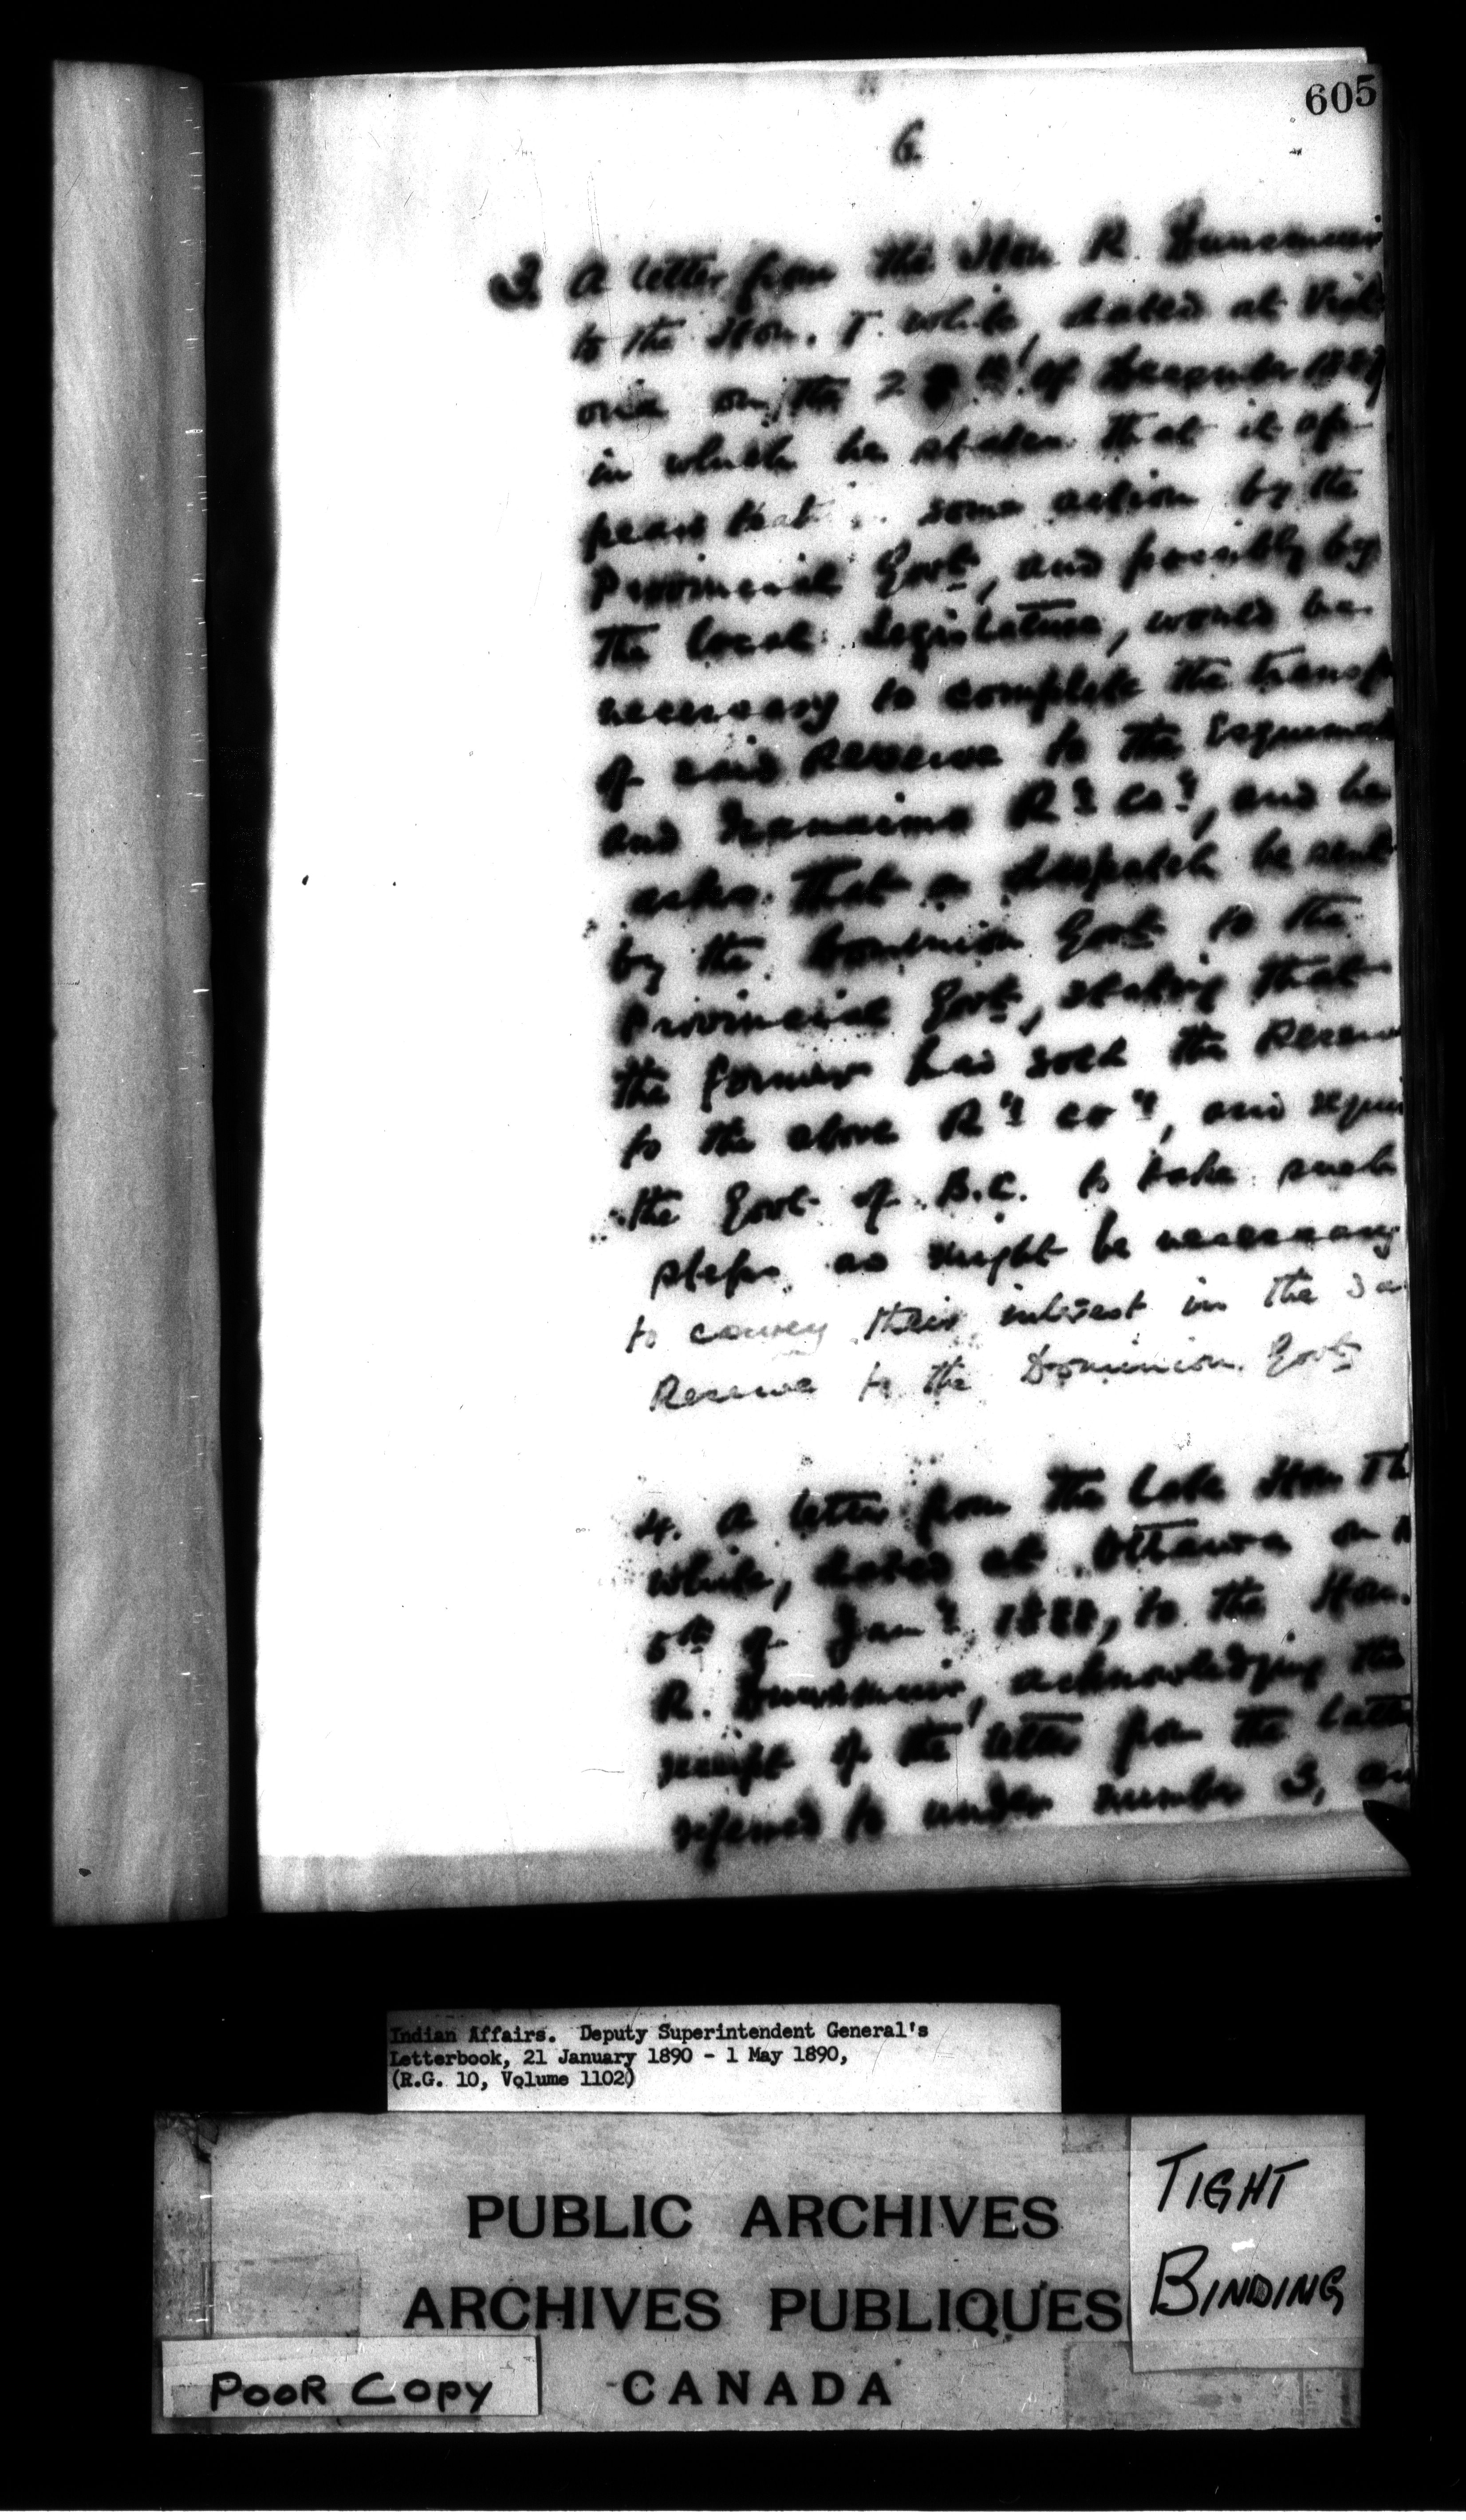 605
6.
3. A letter from the Hon R. Dunsmuir
to the Hon. T. White, dated at Vict
oria on the 2 th of December 1887
in which he states that it ap
pears that some action by the
Provincial Govt, and possibly by
the local Legislature, would be
necessary to complete the transf
of said Reserve to the Esquimalt
and Nanaimo Ry Coy, and he
asks that a despatch be sent
by the Dominion Govt to the
Provincial Govt, stating that
the former had sold the Reserve
to the above Ry Coy, and requi
the Govt of B.C. to take such
steps as might be necessary
to convey their interest in the sa
Reserve to the Dominion Govt
4. A letter from the late Hon Th
White, dated at Ottawa on
5th of Jany 1888, to the Hon.
R. Dunsmuir, acknowledging the
receipt of the letter from the latte
referred to under number 3, an
Indian Affairs. Deputy Superintendent General's
Letterbook, 21 January 1890 - 1 May 1890,
(R.G. 10, Volume 1102)
PUBLIC ARCHIVES
ARCHIVES PUBLIQUES
CANADA
TIGHT
BINDING
POOR COPY